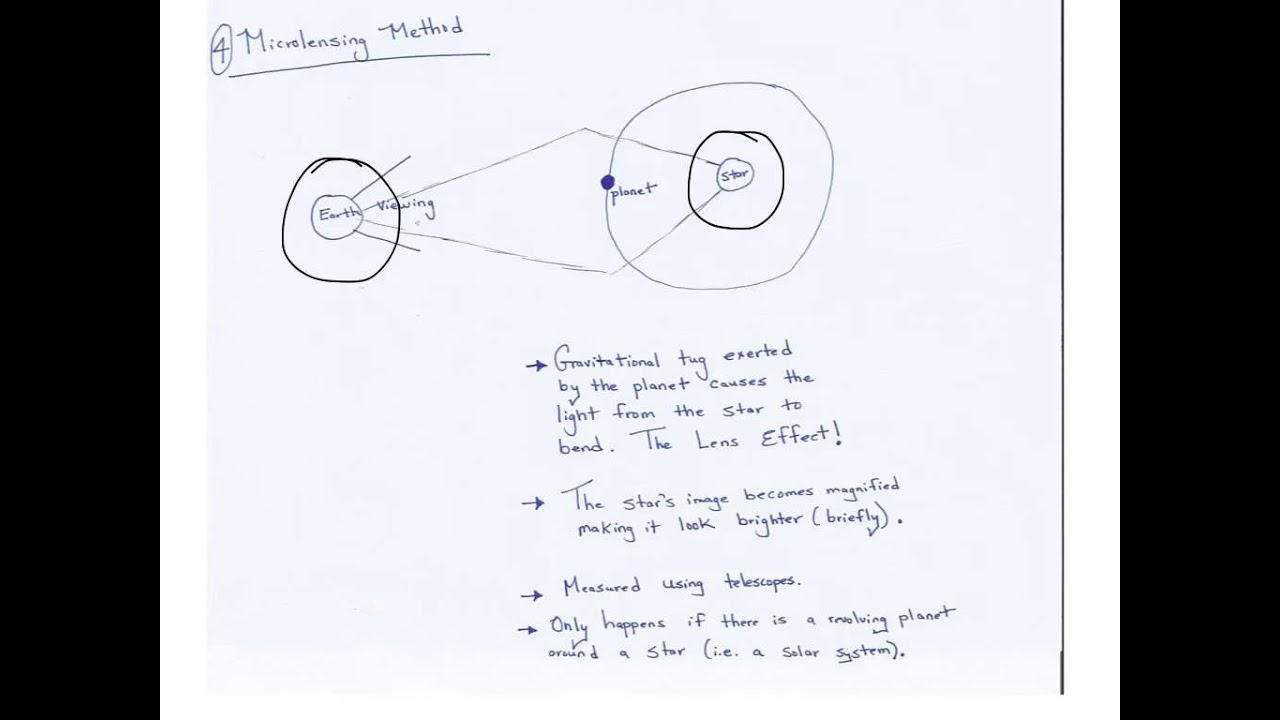 4 Microlensing Method
Earth
Viewing
planet
star
→ Gravitational tug exerted
by the planet causes the
light from the star to
bend. The Lens Effect!
→ The star's image becomes magnified
making it look brighter (briefly).
→ Measured using telescopes.
→ Only happens if there is a revolving planet
around a star (i.e. a solar system).